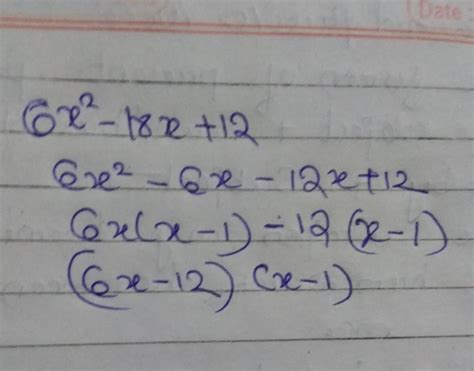 Date
6x² - 18x + 12
6x² - 6x - 12x + 12
6x(x - 1) - 12 (x - 1)
(6x - 12) (x - 1)